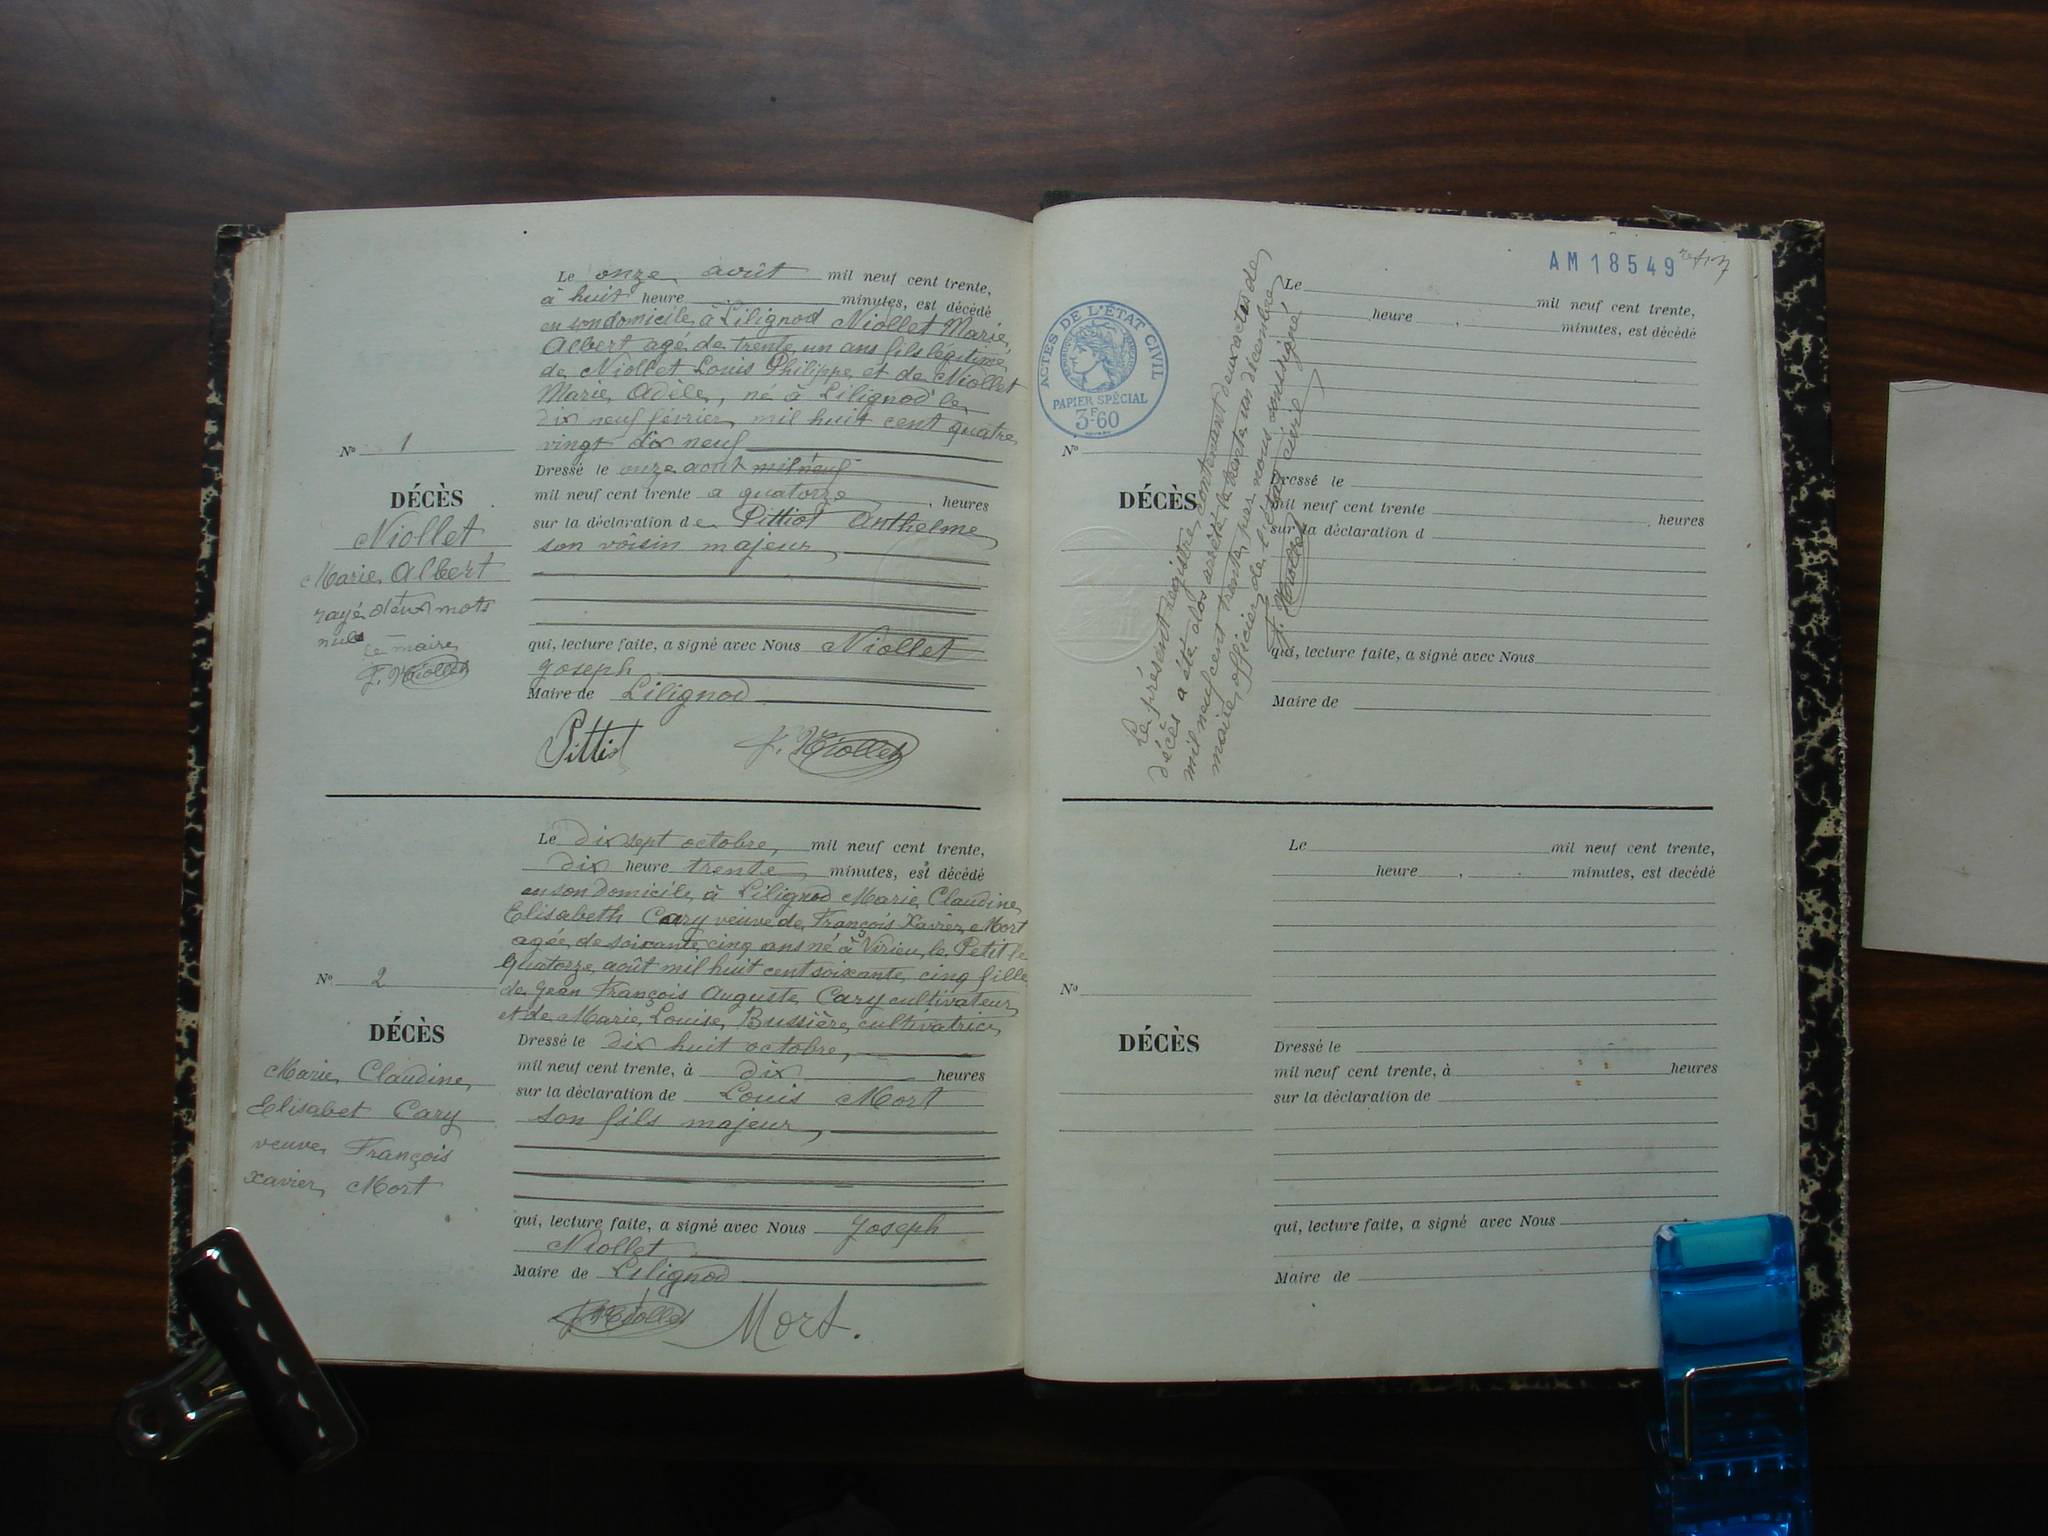 Le onze août mil neuf cent trente,
à huit heure minutes, est décédé
en son domicile à Lilignod Niollet Marie
Albert agé de trente un ans fils légitime
de Niollet Louis Philippe et de Niollet
Marie Adèle, né à Lilignod le
dix neuf février mil huit cent quatre
vingt dix neuf
Nº 1
Dressé le onze août mil neuf
mil neuf cent trente a quatorze heures
DÉCÈS
sur la déclaration de Pittiot Anthelme
Niollet
son voisin majeur
Marie Albert
rayé deux mots
nuls
Le maire
J. Niollet
qui, lecture faite, a signé avec Nous Niollet
Joseph
Maire de Lilignod
Pittiot J. Niollet
Le dix sept octobre, mil neuf cent trente,
dix heure trente minutes, est décédé
en son domicile à Lilignod Marie Claudine
Elisabeth Cary veuve de François Xavier Mort
agée de soixante cinq ans né à Virieu le Petit le
quatorze août mil huit cent soixante cinq fille
de Jean François Auguste Cary cultivateur
et de Marie Louise Bussière cultivatrice
Nº 2
DÉCÈS
Marie Claudine
Elisabet Cary
veuve François
Xavier Mort
Dressé le dix huit octobre,
mil neuf cent trente, à dix heures
sur la déclaration de Louis Mort
son fils majeur,
qui, lecture faite, a signé avec Nous Joseph
Niollet
Maire de Lilignod
J. Niollet Mort.
AM 18549
ACTES DE L'ÉTAT CIVIL
PAPIER SPÉCIAL
3F60
Le présent registre contenant deux actes de
décès a été clos arrêté le trente un décembre
mil neuf cent trente par nous soussigné
maire officier de l'état civil
J. Niollet
Le mil neuf cent trente,
heure , minutes, est décédé
Nº
DÉCÈS
Dressé le
mil neuf cent trente heures
sur la déclaration d
qui, lecture faite, a signé avec Nous
Maire de
Le mil neuf cent trente,
heure , minutes, est decédé
Nº
DÉCÈS
Dressé le
mil neuf cent trente, à heures
sur la déclaration de
qui, lecture faite, a signé avec Nous
Maire de